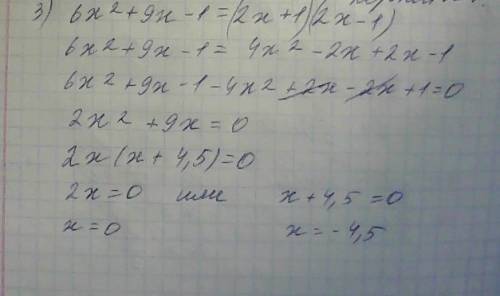 3) 6x² + 9x - 1 = (2x + 1)(2x - 1)
6x² + 9x - 1 = 4x² - 2x + 2x - 1
6x² + 9x - 1 - 4x² + 2x - 2x + 1 = 0
2x² + 9x = 0
2x (x + 4,5) = 0
2x = 0 или x + 4,5 = 0
x = 0 x = -4,5